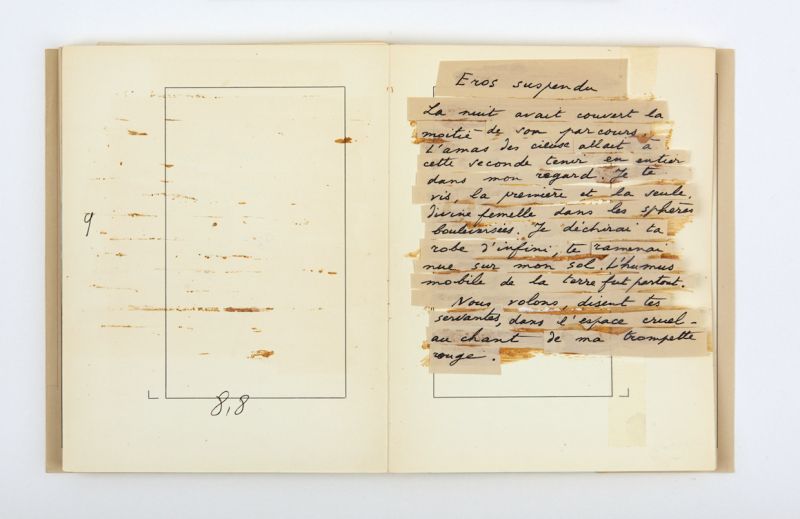 9
8,8
Eros suspendu
La nuit avait couvert la
moitié de son parcours.
L'amas des cieux allait à
cette seconde tenir en entier
dans mon regard. Je te
vis, la première et la seule,
divine femelle dans les sphères
bouleversées. Je déchirai ta
robe d'infini, te ramenai
nue sur mon sol. L'humus
mobile de la terre fut partout.
Nous volons, disent tes
servantes, dans l'espace cruel -
au chant de ma trompette
rouge.